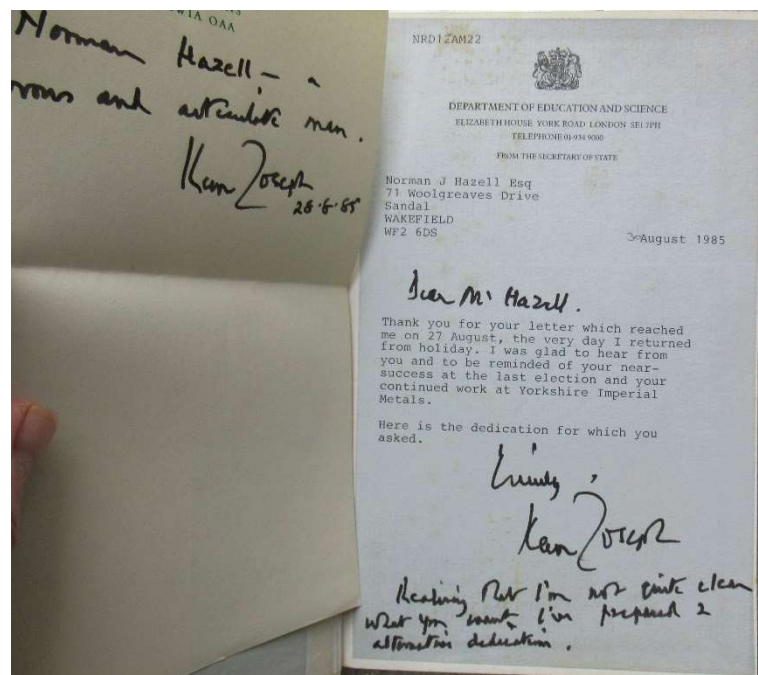 WIA OAA
Norman Hazell – a
rous and articulate man.
Keith Joseph
28.8.85
NRDIZAM22
DEPARTMENT OF EDUCATION AND SCIENCE
ELIZABETH HOUSE YORK ROAD LONDON SE1 7PH
TELEPHONE 01-934 9000
FROM THE SECRETARY OF STATE
Norman J Hazell Esq
71 Woolgreaves Drive
Sandal
WAKEFIELD
WF2 6DS
30 August 1985
Dear Mr Hazell.
Thank you for your letter which reached
me on 27 August, the very day I returned
from holiday. I was glad to hear from
you and to be reminded of your near-
success at the last election and your
continued work at Yorkshire Imperial
Metals.
Here is the dedication for which you
asked.
Keith Joseph
Realising that I'm not quite clear
what you want, I've prepared 2
alternative dedications.